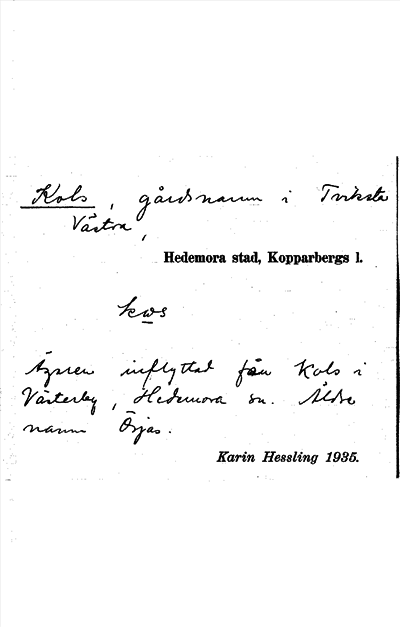 Kols, gårdsnamn i Tviksta
Västra,
Hedemora stad, Kopparbergs l.
kωs
Ägaren inflyttad från Kols i
Västerby, Hedemora sn. Äldre
namn Örjas.
Karin Hessling 1935.